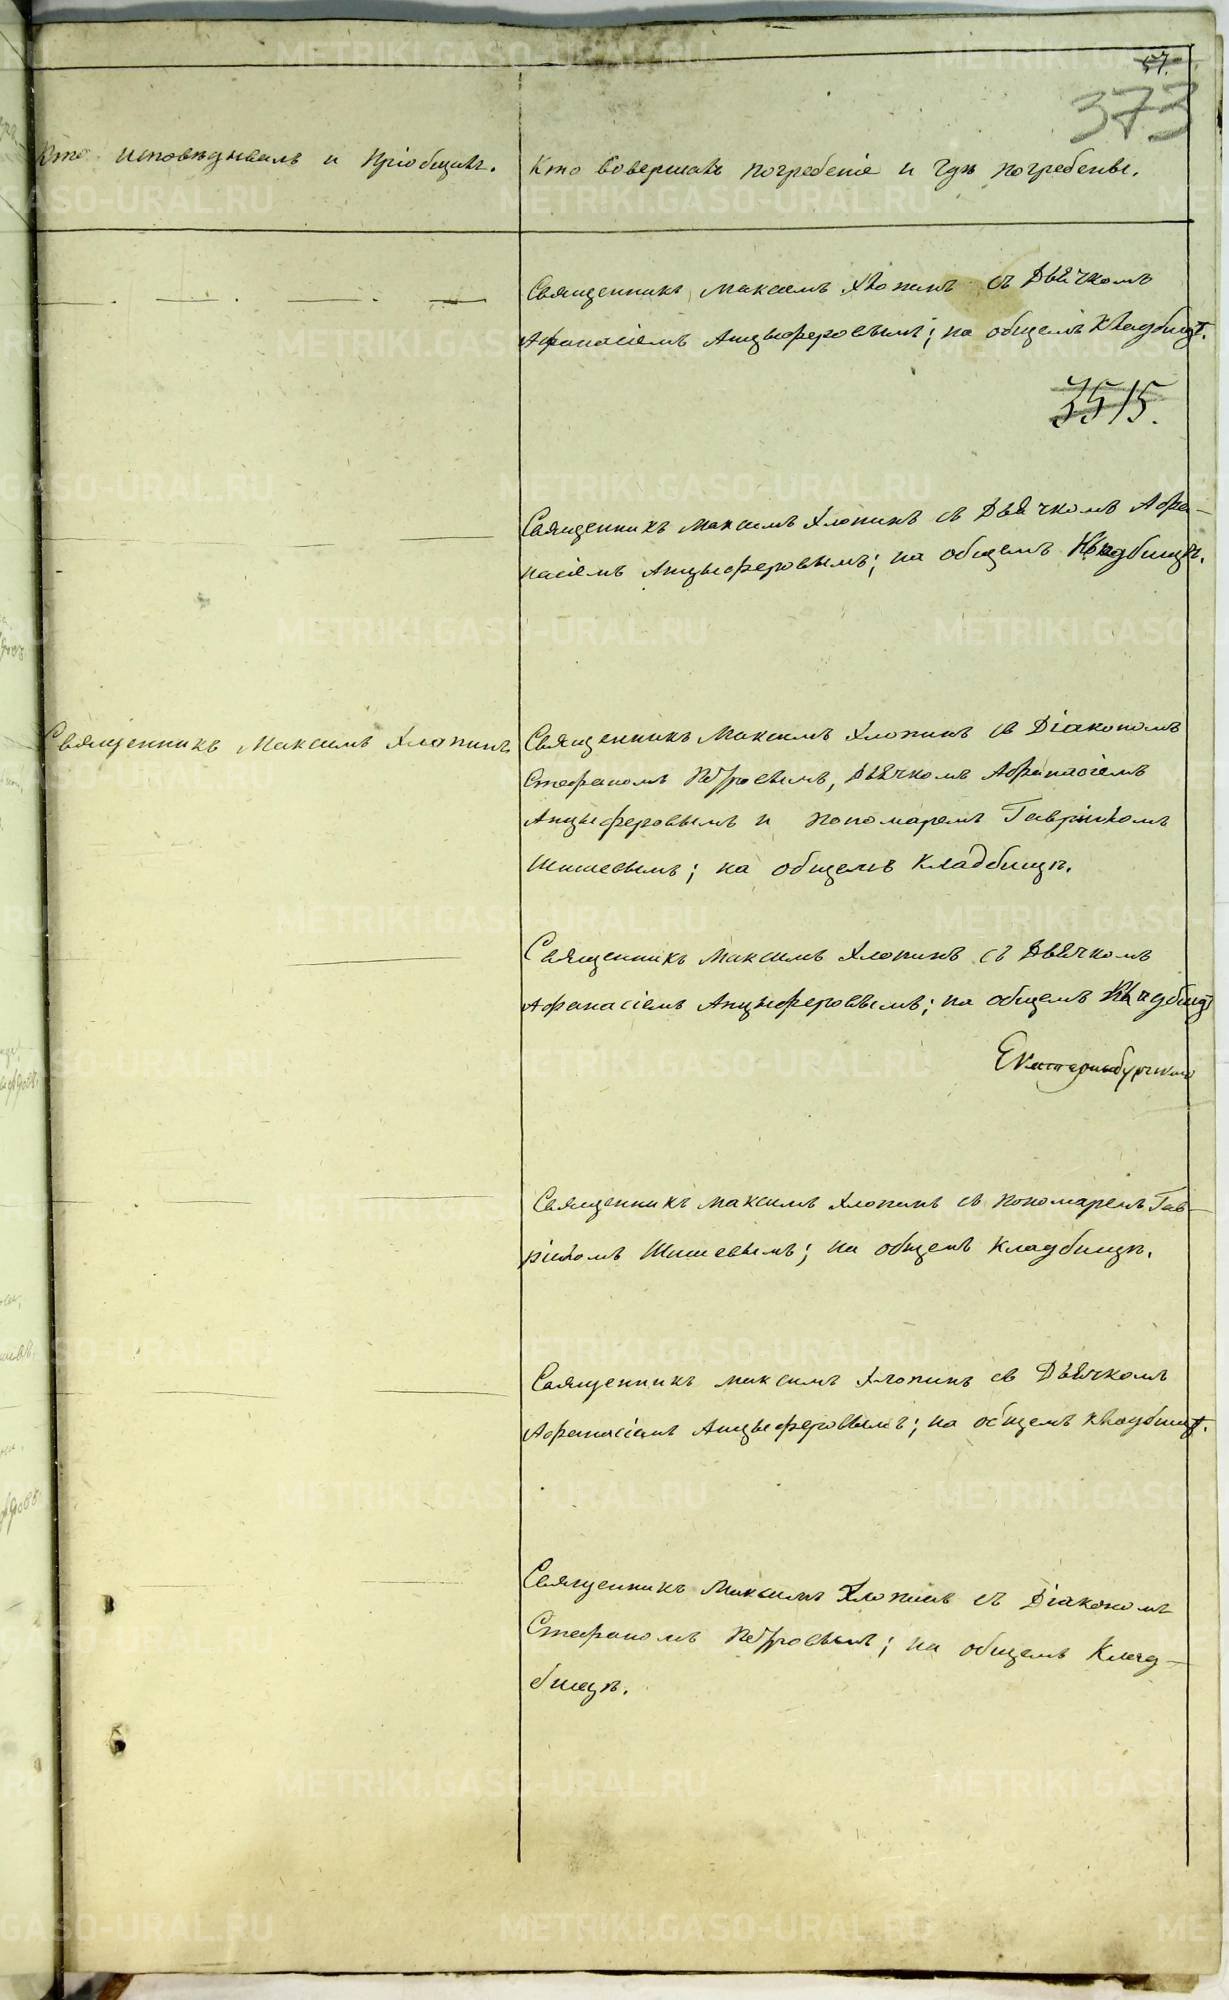 57.
373
Кто исповѣдывалъ и пріобщилъ.
Кто совершалъ погребеніе и гдѣ погребены.
Священникъ Максимъ Хлопинъ съ Дьячкомъ
Афанасіемъ Анцыферовымъ; на общемъ кладбищѣ.
3515.
Священникъ Максимъ Хлопинъ съ Дьячкомъ Афа-
насіемъ Анцыферовымъ; на общемъ кладбищѣ.
Священникъ Максимъ Хлопинъ
Священникъ Максимъ Хлопинъ съ Діакономъ
Стефаномъ Петровымъ, Дьячкомъ Афанасіемъ
Анцыферовымъ и пономаремъ Гавріиломъ
Шишевымъ; на общемъ кладбищѣ.
Священникъ Максимъ Хлопинъ съ Дьячкомъ
Афанасіемъ Анцыферовымъ; на общемъ кладбищѣ
Екатеринбургскаго
Священникъ Максимъ Хлопинъ съ пономаремъ Гав-
ріиломъ Шишевымъ; на общемъ кладбищѣ.
Священникъ Максимъ Хлопинъ съ Дьячкомъ
Афанасіемъ Анцыферовымъ; на общемъ кладбищѣ.
Священникъ Максимъ Хлопинъ съ Діакономъ
Стефаномъ Петровымъ; на общемъ клад-
бищѣ.
METRIKI.GASO-URAL.RU